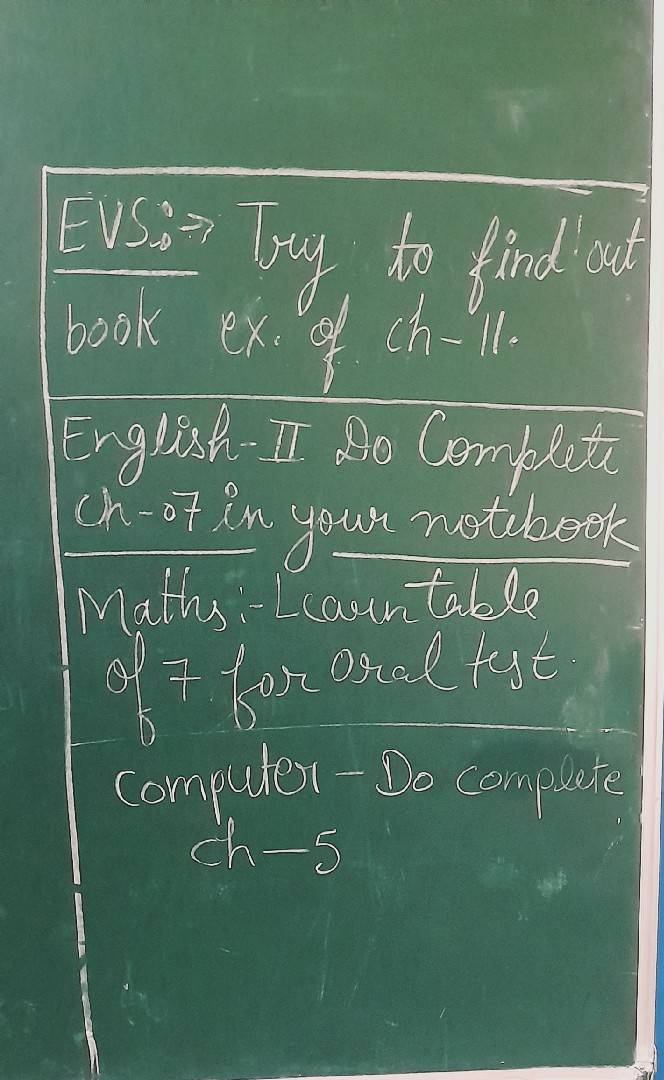 EVS:→ Try to find out
book ex. of ch-11.
English-II Do Complete
ch-07 in your notebook
Maths:- Learn table
of 7 for oral test.
computer - Do complete
ch-5